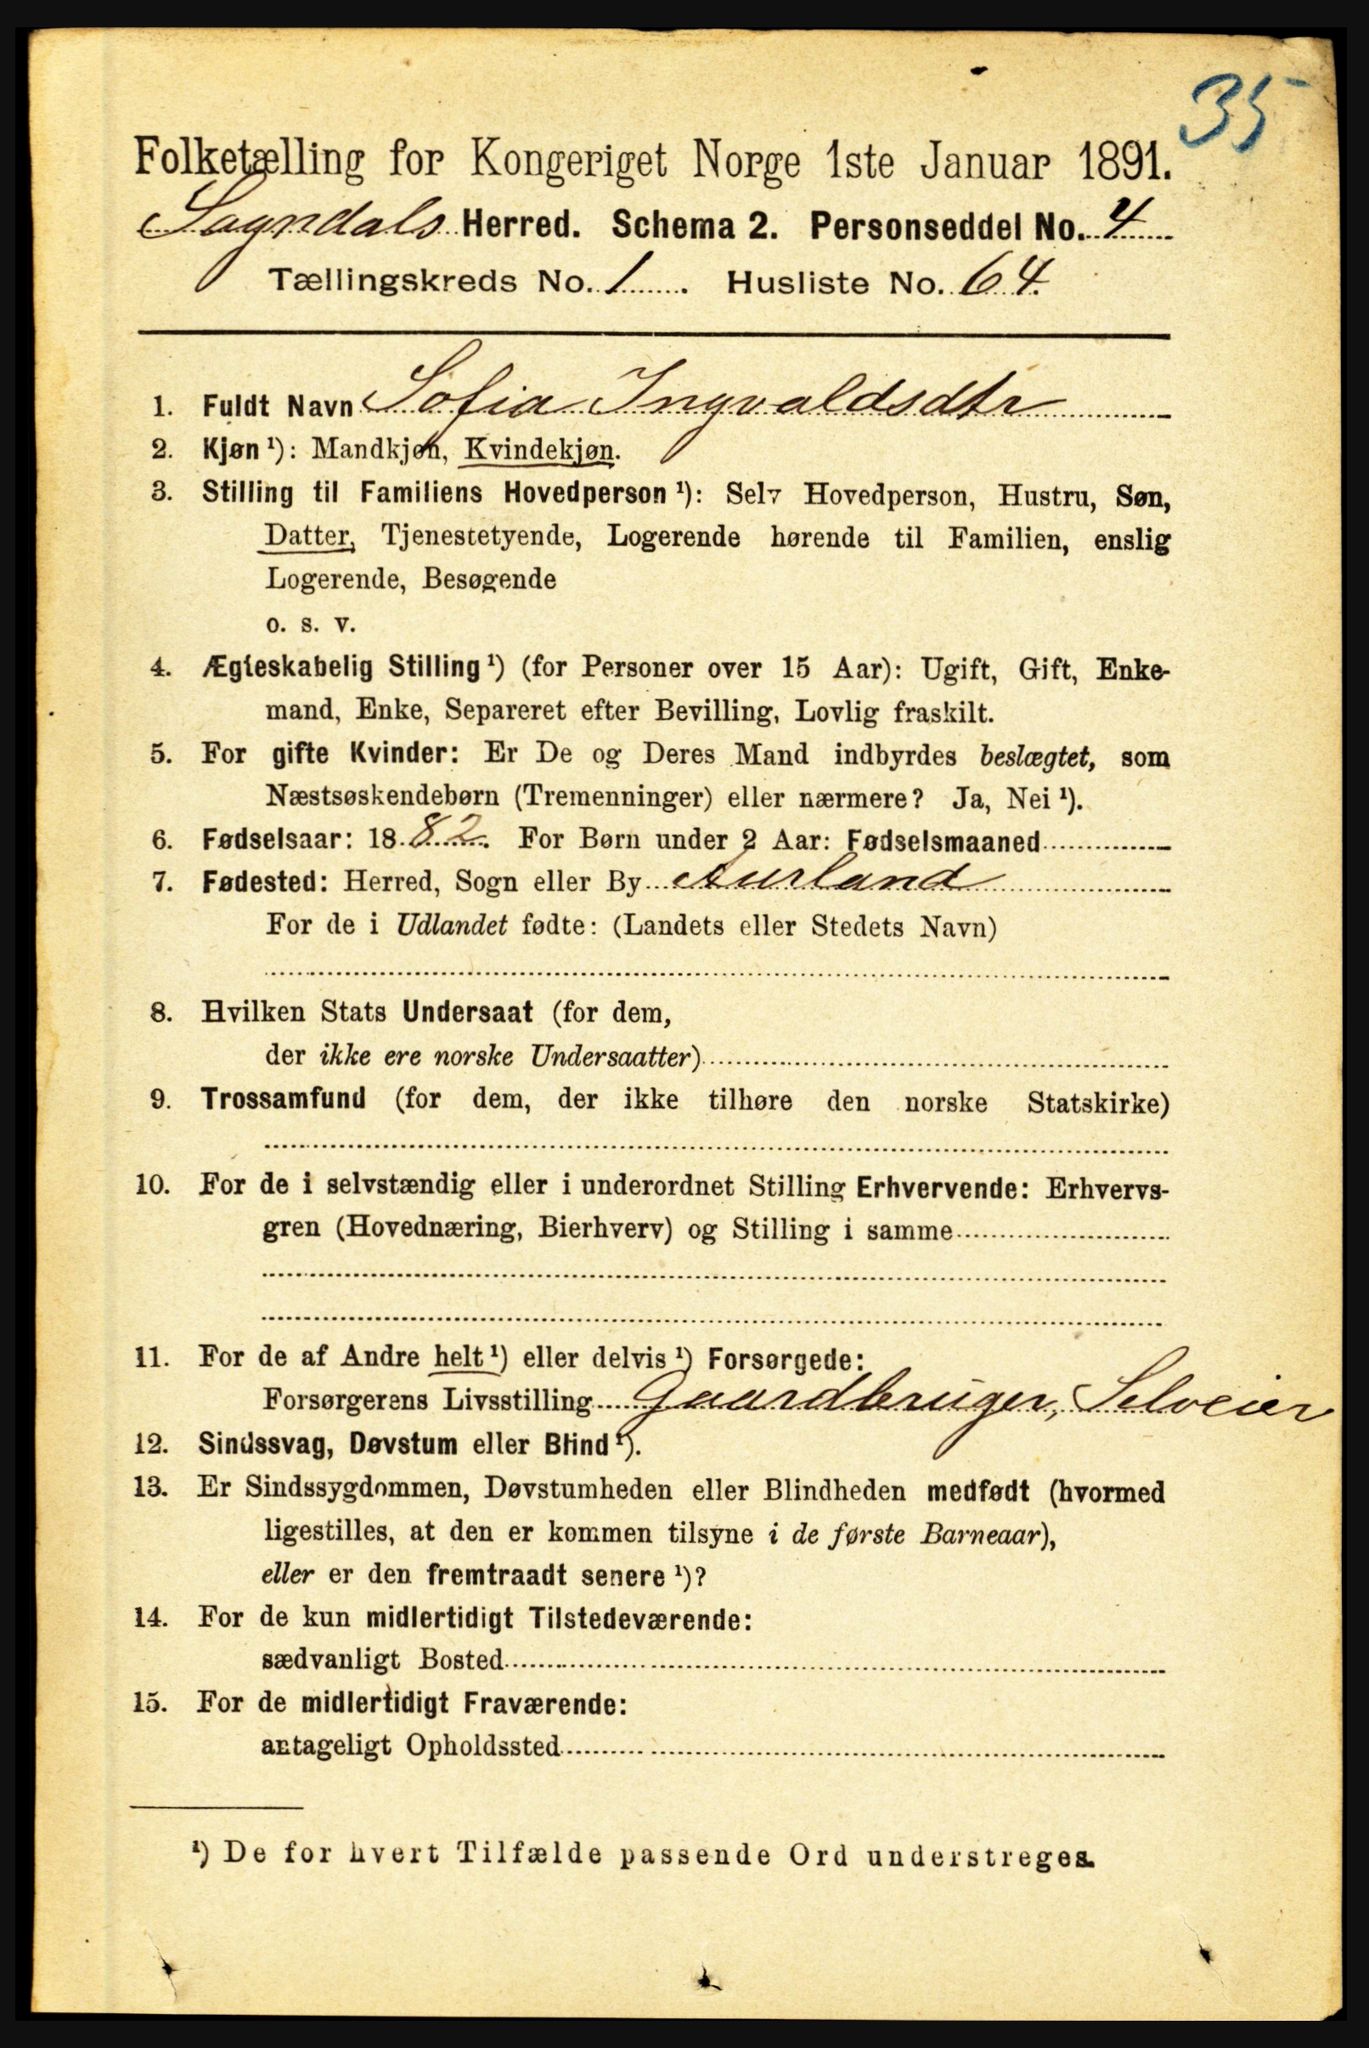 35
Folketælling for Kongeriget Norge 1ste Januar 1891.
Sogndals Herred. Schema 2. Personseddel No. 4
Tællingskreds No. 1. Husliste No. 64.
1. Fuldt Navn Sofia Ingvaldsdtr
2. Kjøn ¹): Mandkjøn, Kvindekjøn.
3. Stilling til Familiens Hovedperson ¹): Selv Hovedperson, Hustru, Søn,
Datter, Tjenestetyende, Logerende hørende til Familien, enslig
Logerende, Besøgende
o. s. v.
4. Ægteskabelig Stilling ¹) (for Personer over 15 Aar): Ugift, Gift, Enke-
mand, Enke, Separeret efter Bevilling, Lovlig fraskilt.
5. For gifte Kvinder: Er De og Deres Mand indbyrdes beslægtet, som
Næstsøskendebørn (Tremenninger) eller nærmere? Ja, Nei ¹).
6. Fødselsaar: 1882. For Børn under 2 Aar: Fødselsmaaned
7. Fødested: Herred, Sogn eller By Aurland
For de i Udlandet fødte: (Landets eller Stedets Navn)
8. Hvilken Stats Undersaat (for dem,
der ikke ere norske Undersaatter)
9. Trossamfund (for dem, der ikke tilhøre den norske Statskirke)
10. For de i selvstændig eller i underordnet Stilling Erhvervende: Erhvervs-
gren (Hovednæring, Bierhverv) og Stilling i samme
11. For de af Andre helt ¹) eller delvis ¹) Forsørgede:
Forsørgerens Livsstilling Gaardbruger, Selveier
12. Sindssvag, Døvstum eller Blind ¹).
13. Er Sindssygdommen, Døvstumheden eller Blindheden medfødt (hvormed
ligestilles, at den er kommen tilsyne i de første Barneaar),
eller er den fremtraadt senere ¹)?
14. For de kun midlertidigt Tilstedeværende:
sædvanligt Bosted
15. For de midlertidigt Fraværende:
antageligt Opholdssted
¹) De for hvert Tilfælde passende Ord understreges.